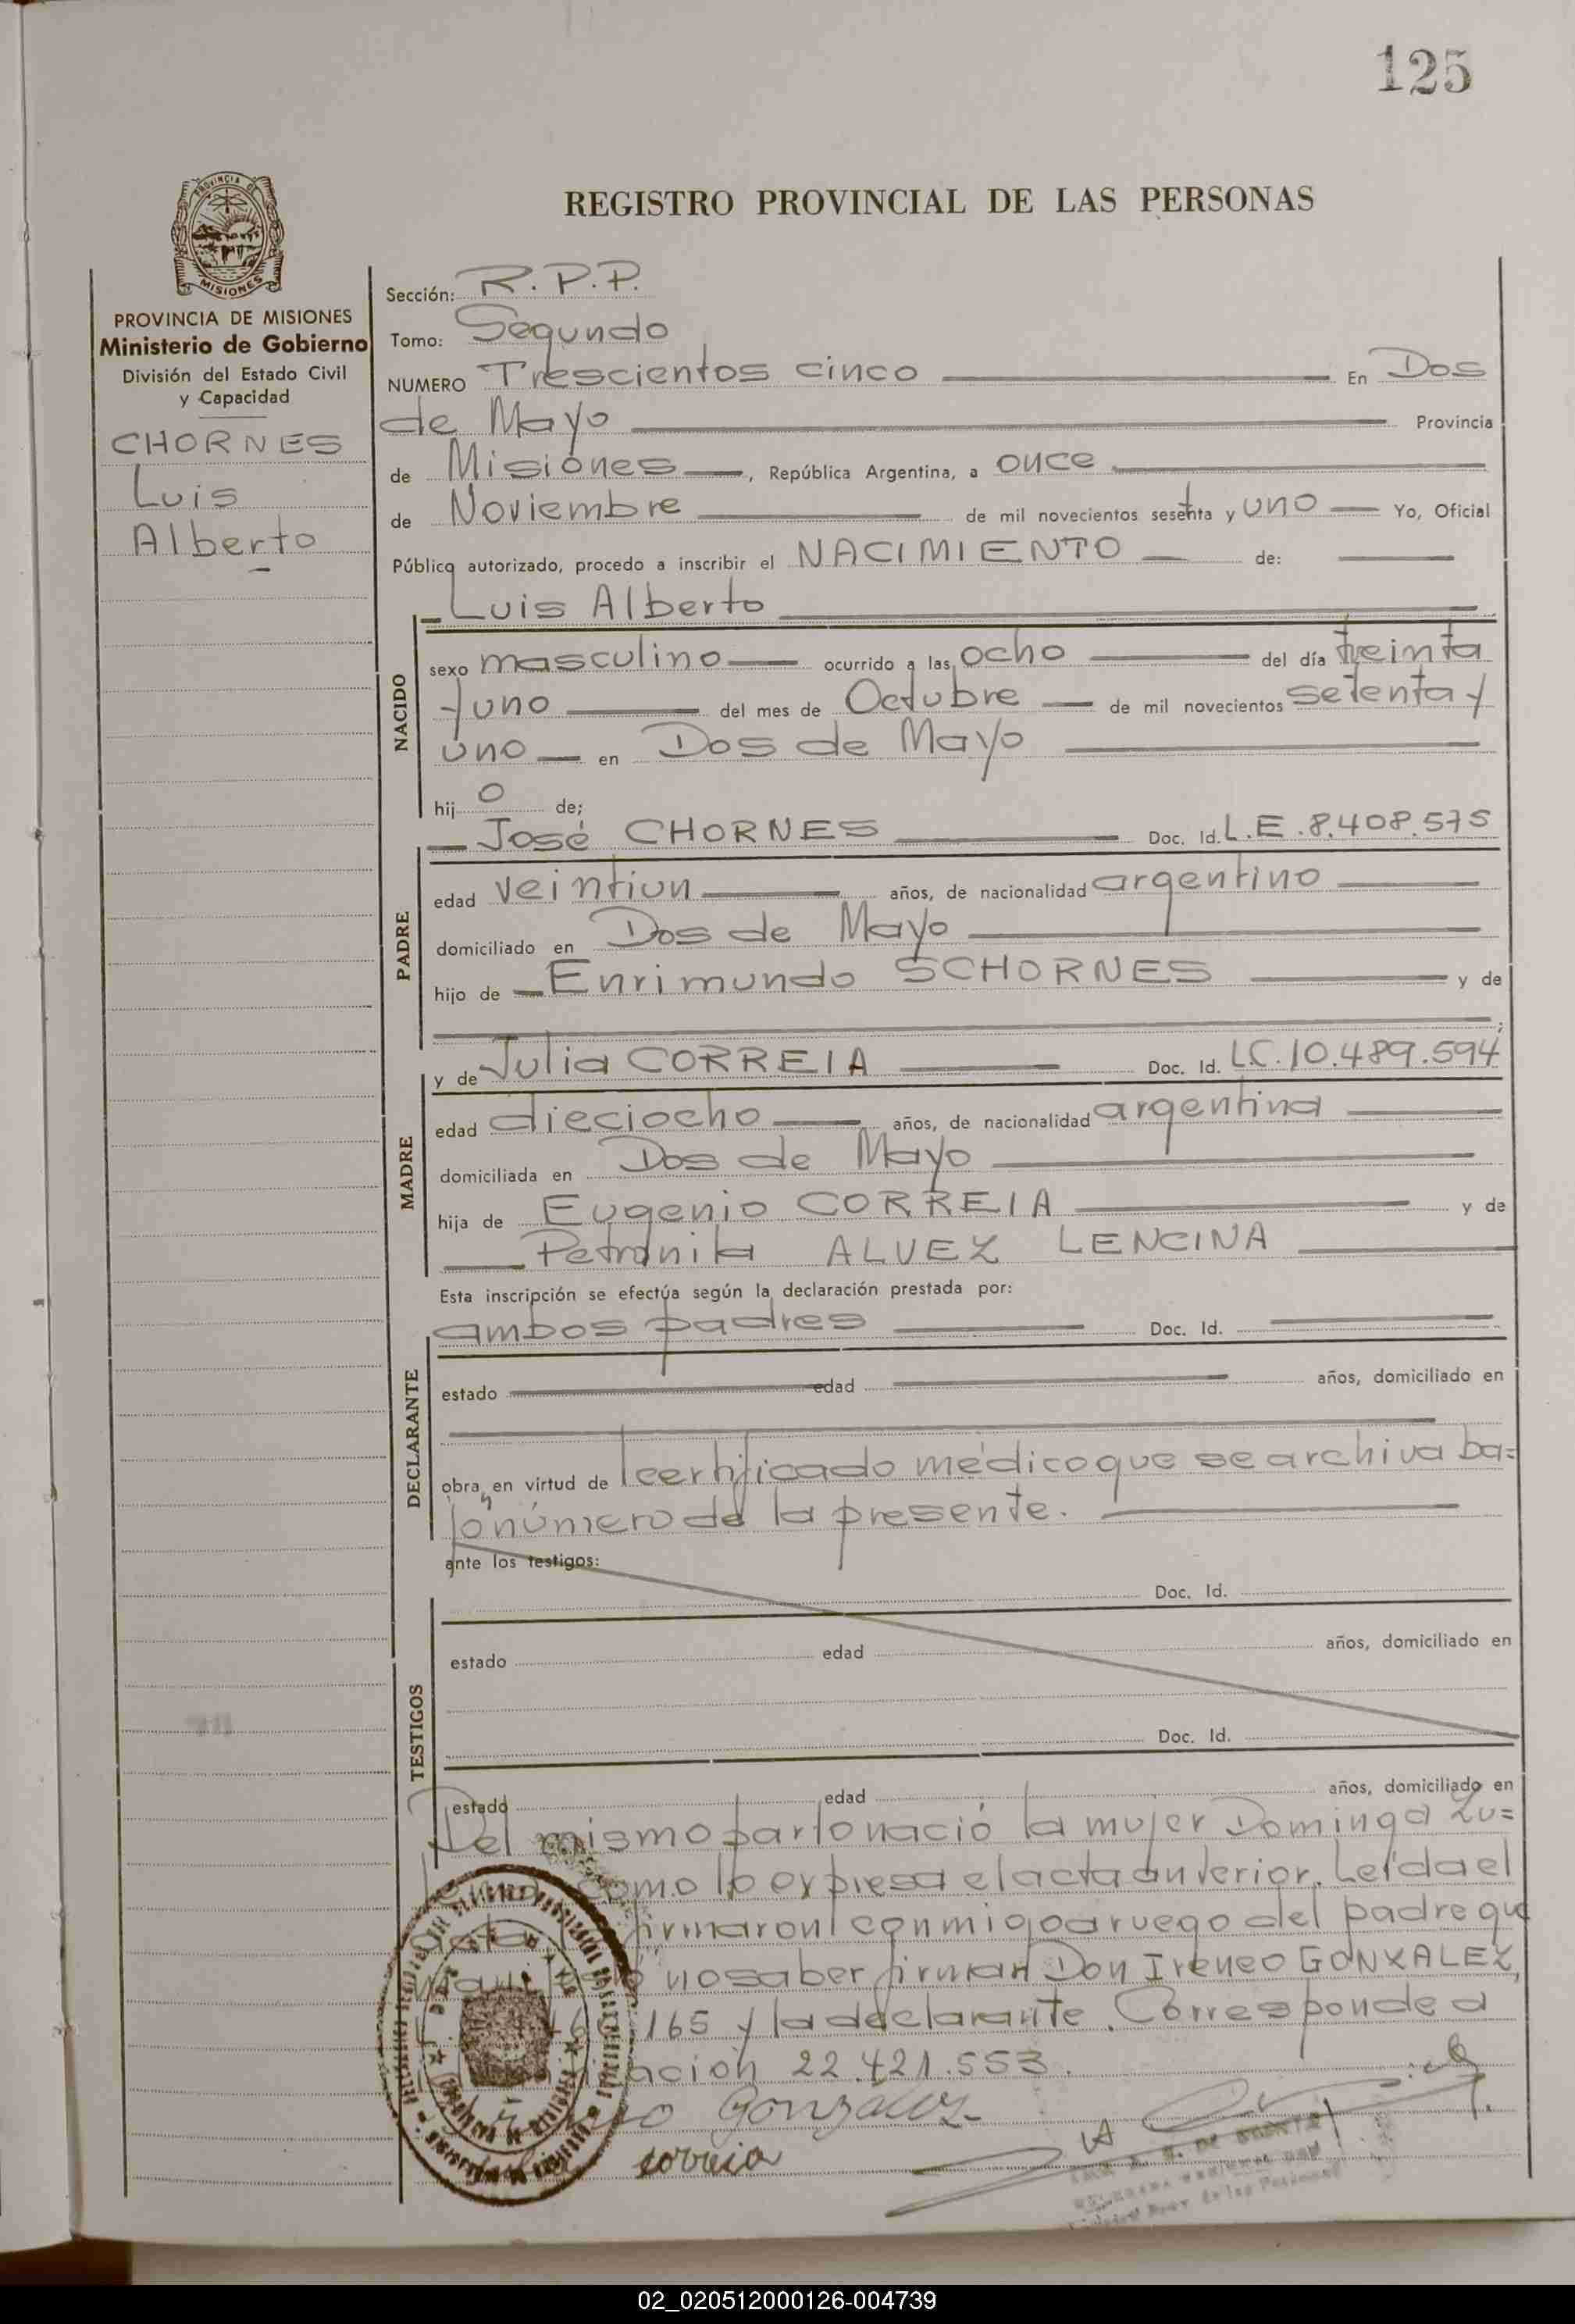 125
REGISTRO PROVINCIAL DE LAS PERSONAS
PROVINCIA DE MISIONES
MISIONES
PROVINCIA DE MISIONES
Ministerio de Gobierno
División del Estado Civil
y Capacidad
CHORNES
Luis
Alberto
Sección: R.P.P.
Tomo: Segundo
NUMERO Trescientos cinco En Dos
de Mayo Provincia
de Misiones, República Argentina, a once
de Noviembre de mil novecientos sesenta y uno Yo, Oficial
Público autorizado, procedo a inscribir el NACIMIENTO de:
Luis Alberto
NACIDO
sexo masculino ocurrido a las ocho del día treinta
y uno del mes de Octubre de mil novecientos setenta y
uno en Dos de Mayo
hij o de;
José CHORNES Doc. Id. L.E. 8.408.575
PADRE
edad veintiun años, de nacionalidad argentino
domiciliado en Dos de Mayo
hijo de Enrimundo SCHORNES y de
;
y de Julia CORREIA Doc. Id. LC. 10.489.594
MADRE
edad dieciocho años, de nacionalidad argentina
domiciliada en Dos de Mayo
hija de Eugenio CORREIA y de
Petronila ALVEZ LENCINA
Esta inscripción se efectúa según la declaración prestada por:
ambos padres Doc. Id.
DECLARANTE
estado edad años, domiciliado en
obra en virtud de certificado médico que se archiva ba=
jo número de la presente.
ante los testigos:
Doc. Id.
TESTIGOS
estado edad años, domiciliado en
Doc. Id.
estado edad años, domiciliado en
Del mismo parto nació la mujer Dominga Lu=
como lo expresa el acta anterior. Leída el
firmaron conmigo a ruego del padre que
no saber firmar Don Ireneo GONZALEZ,
165 y la declarante. Corresponde a
22.421.553.
Gonzalez
correia
02_020512000126-004739